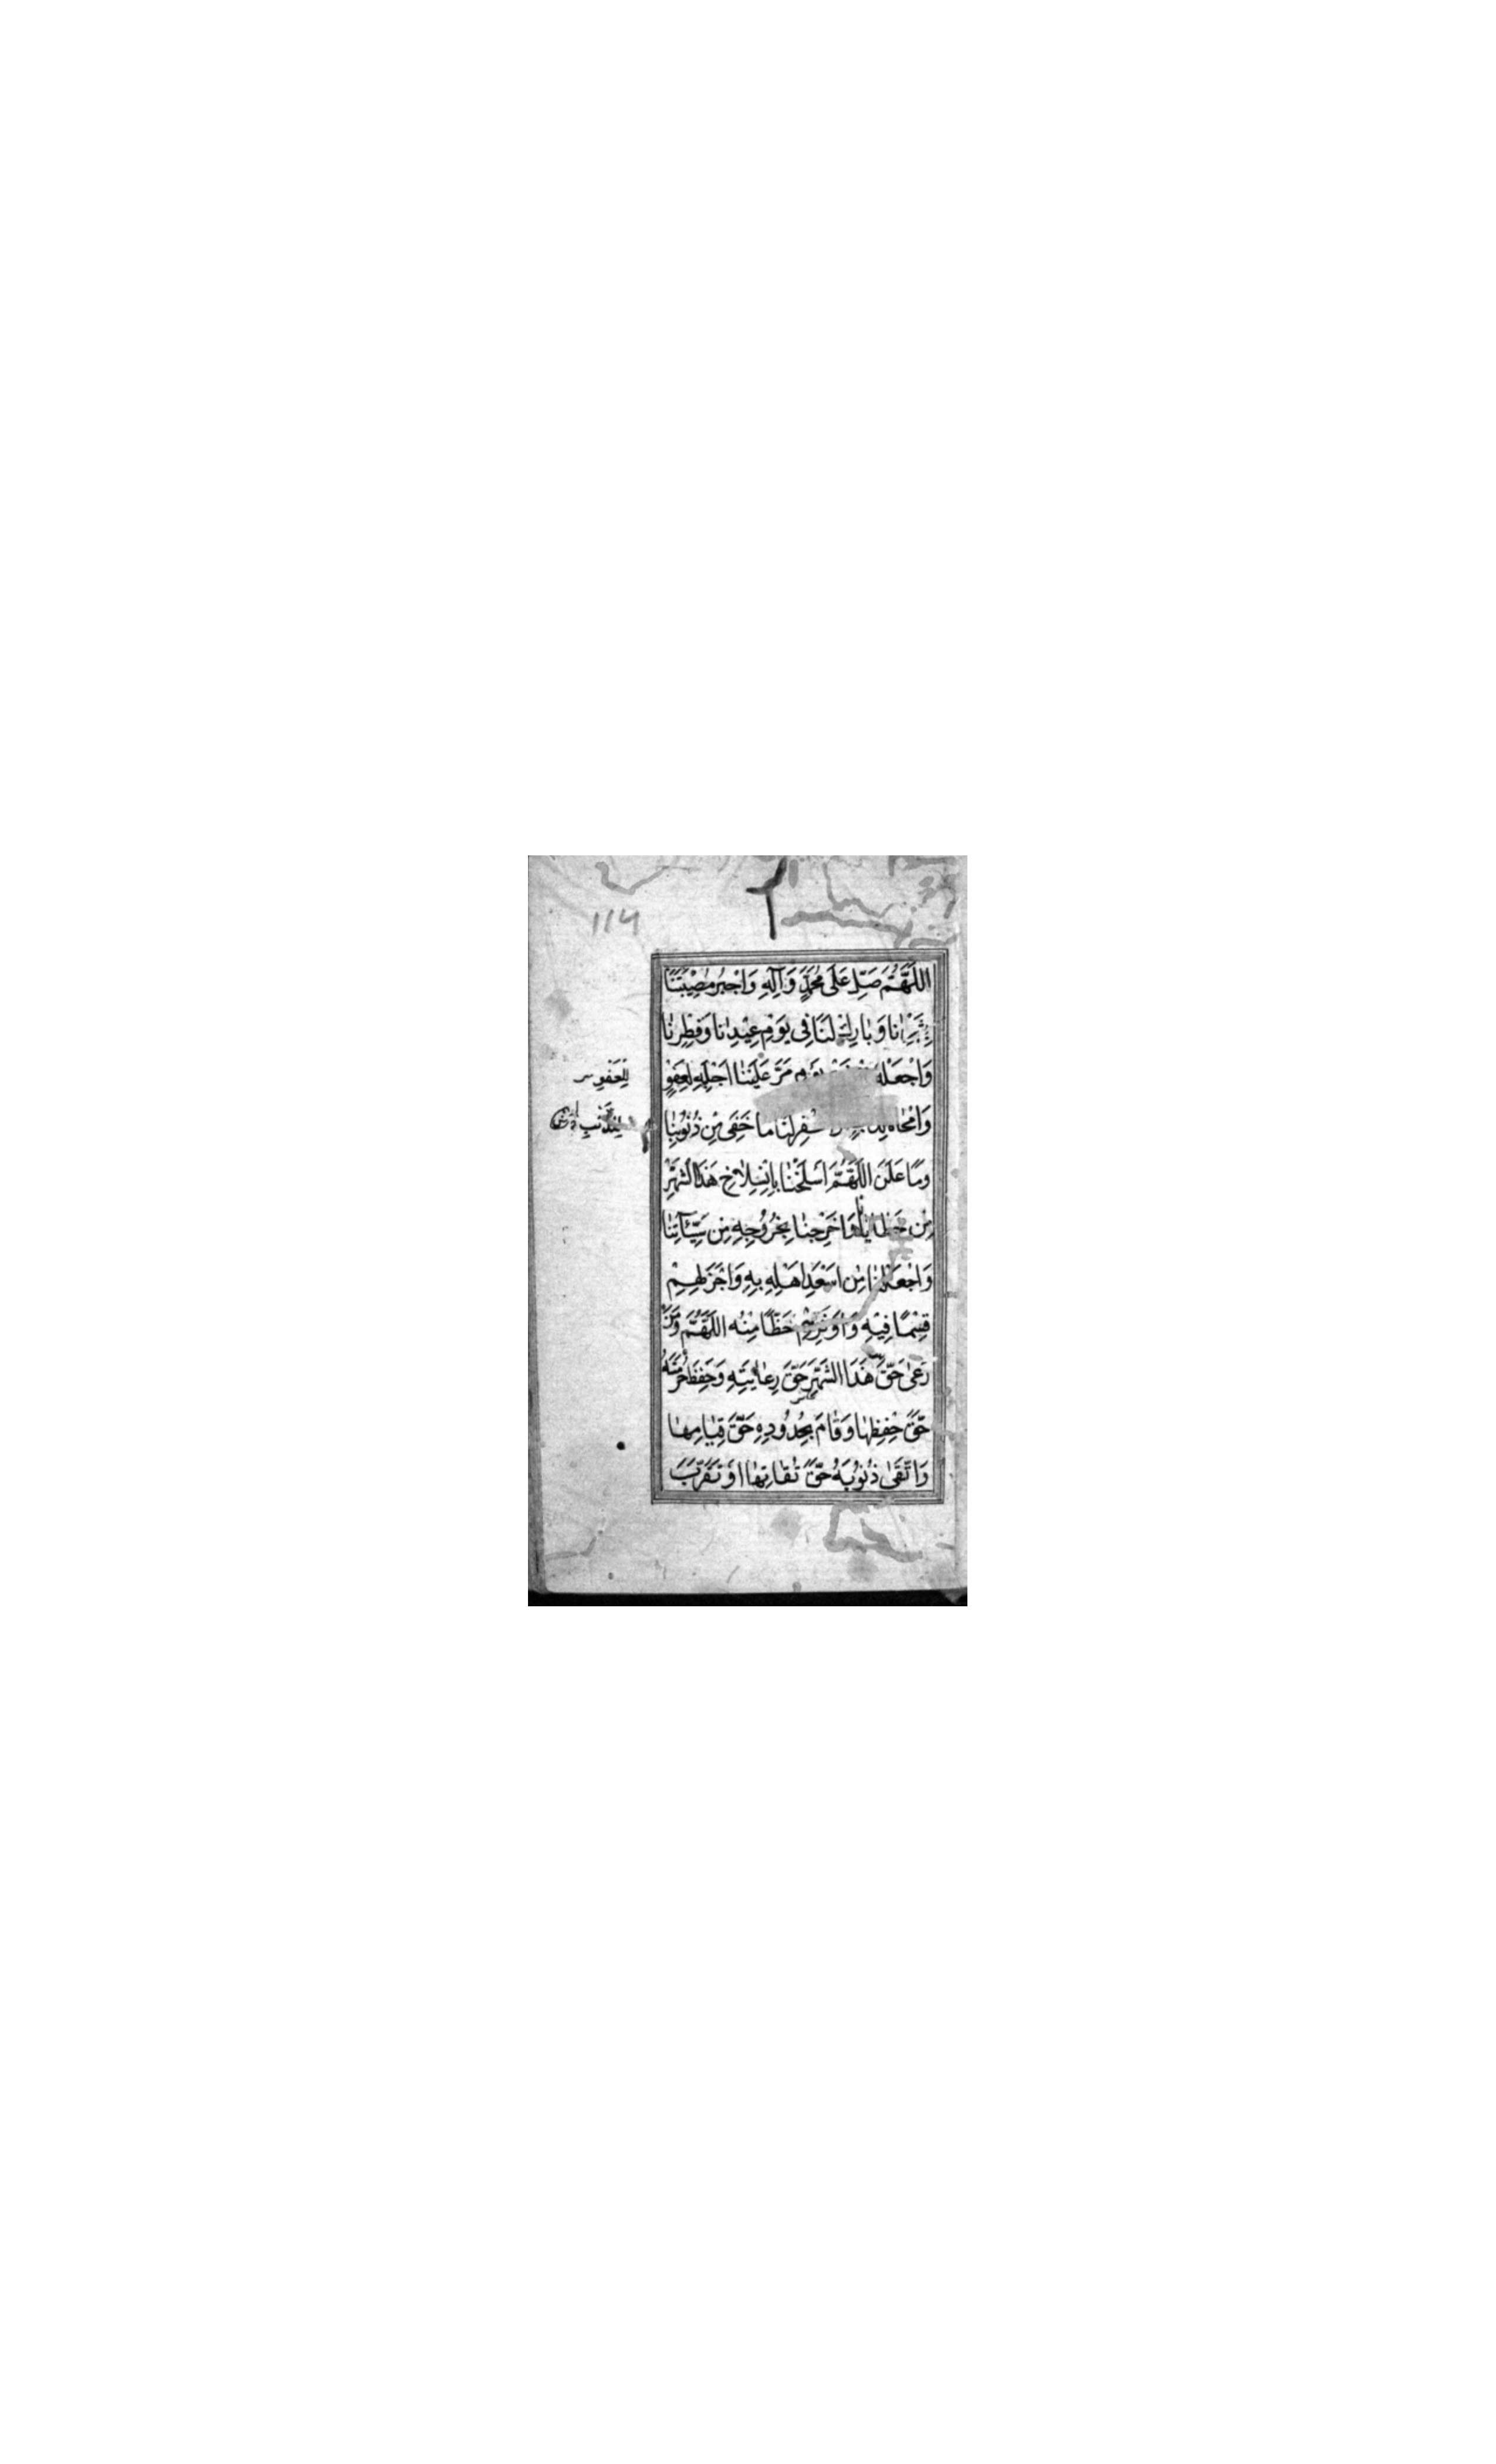 اللَّهُمَّ صَلِّ عَلَى مُحَمَّدٍ وَآلِهِ وَاجْبُرْ مُصِيْبَتَنَا
بِشَهْرِنَا وَبَارِكْ لَنَا فِى يَوْمِ عِيْدِنَا وَفِطْرِنَا
وَاجْعَلْهُ يَوْمٍ مَرَّ عَلَيْنَا اَجْلَبِهِ لِعَفْوٍ
وَاَمْحَاهُ لَنَا مَا خَفِىَ مِنْ ذُنُوْبِنَا
وَمَا عَلَنَ اللَّهُمَّ اسْلَخْنَا بِانْسِلَاخِ هَذَا الشَّهْرِ
مِنْ خَطَايَانَا وَاَخْرِجْنَا بِخُرُوْجِهِ مِنْ سَيِّئَاتِنَا
وَاجْعَلْنَا مِنْ اَسْعَدِ اَهْلِهِ بِهِ وَاَجْزَلِهِمْ
قِسْمًا فِيْهِ وَاَوْفَرِهِمْ حَظًّا مِنْهُ اللَّهُمَّ وَمَنْ
رَعَى حَقَّ هَذَا الشَّهْرِ حَقَّ رِعَايَتِهِ وَحَفِظَ حُرْمَتَهُ
حَقَّ حِفْظِهَا وَقَامَ بِحُدُوْدِهِ حَقَّ قِيَامِهَا
وَاتَّقَى ذُنُوْبَهُ حَقَّ تُقَاتِهَا اَوْ تَقَرَّبَ
لِلْعَفْوِ
لِذَنْبٍ
114